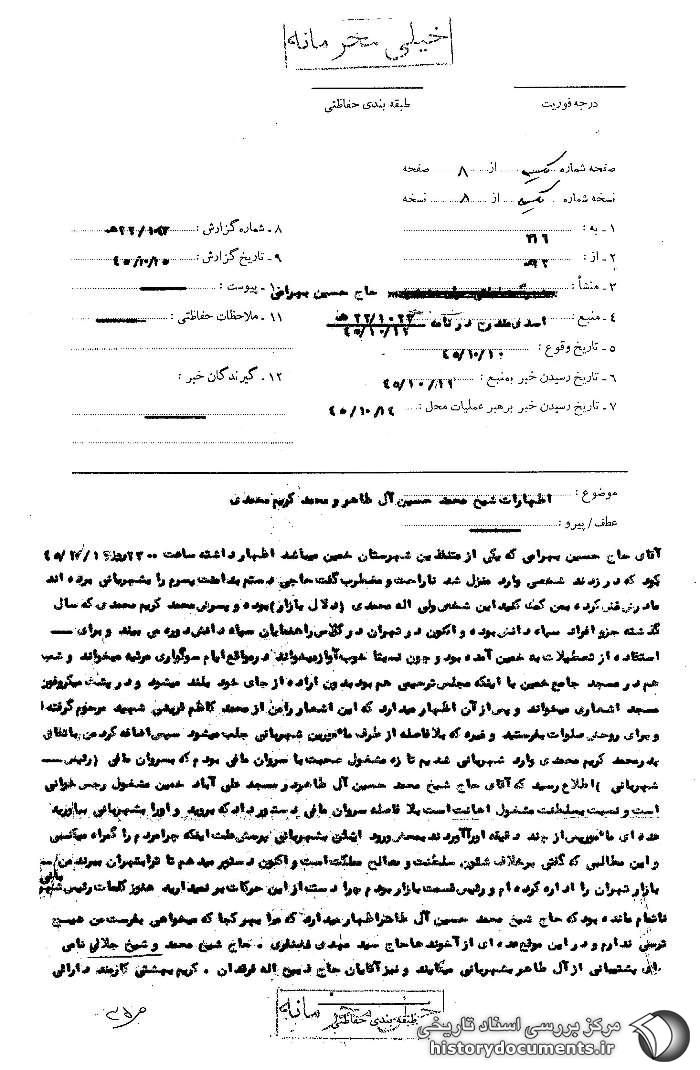 خیلی محرمانه
درجه فوریت
طبقه بندی حفاظتی
صفحه شماره یک از ۸ صفحه
نسخه شماره از ۸ نسخه
۱ ـ به : ۳۱۶
۲ ـ از :
۳ ـ منشأ : حاج حسین بهرامی
۴ ـ منبع : در نامه
۴۵/۱۰/۱۲
۵ ـ تاریخ وقوع : ۴۵/۱۰/۱۰
۶ ـ تاریخ رسیدن خبر بمنبع :
۷ ـ تاریخ رسیدن خبر برهبر عملیات محل : ۴۵/۱۰/۱۴
۸ ـ شماره گزارش :
۹ ـ تاریخ گزارش :
۱۰ ـ پیوست :
۱۱ ـ ملاحظات حفاظتی :
۱۲ ـ گیرندگان خبر :
موضوع : اظهارات شیخ محمد حسین آل طاهر و محمد کریم محمدی
عطف / پیرو :
آقای حاج حسین بهرامی که یکی از متنفذین شهرستان خمین میباشد اظهار داشته ساعت
بود که در زدند شخصی وارد منزل شد ناراحت و مضطرب گفت حاجی دستم بدامنت پسرم را بشهربانی برده اند
مادرش غش کرده بمن کمک کنید این شخص ولی اله محمدی (دلال بازار) بوده و پسرش محمد کریم محمدی که سال
گذشته جزو افراد سپاه دانش بوده و اکنون در تهران در کلاس راهنمایان سپاه دانش دوره می بیند و برای
استفاده از تعطیلات به خمین آمده بود و چون نسبتا خوب آواز میخواند در مواقع ایام سوگواری مرثیه میخواند و شب
هم در مسجد جامع خمین با اینکه مجلس ترحیمی هم بود بدون اراده از جای خود بلند میشود و در پشت میکروفن
مسجد اشعاری میخواند و پس از آن اظهار میدارد که این اشعار را من از محمد کاظم قریشی شهید مرحوم گرفته ام
و برای روحش صلوات بفرستید و غیره که بلافاصله از طرف مأمورین شهربانی جلب میشود سپس اضافه کرد من باتفاق
پدر محمد کریم محمدی وارد شهربانی شدیم تازه مشغول صحبت با سروان مانی بودم که بسروان مانی (رئیس
شهربانی) اطلاع رسید که آقای حاج شیخ محمد حسین آل طاهر در مسجد علی آباد خمین مشغول رجس خوانی
است و نسبت بسلطنت مشغول اهانت است بلا فاصله سروان مانی دستور داد که بروید و او را بشهربانی بیاورید
عده ای مأمور پس از چند دقیقه او را آوردند بمحض ورود ایشان بشهربانی پرسش علت اینکه چرا مردم را گمراه میکنی
و این مطالبی که گفتی بر خلاف شئون سلطنت و مصالح مملکت است و اکنون دستور میدهم تا ترا بتهران ببرند من
بازار تهران را اداره کرده ام و رئیس قسمت بازار بودم چرا دست از این حرکات بر نمیدارید هنوز کلمات رئیس شهربانی
ناتمام مانده بود که حاج شیخ محمد حسین آل طاهر اظهار میدارد که مرا بهر کجا که میخواهی بفرست من هیچ
ترسی ندارم و در این موقع عده ای از آخوند ها حاج سید مهدی ، حاج شیخ محمد و شیخ جلالی نامی
برای پشتیبانی از آل طاهر بشهربانی میآیند و نیز آقایان حاج ذبیح اله فرقدان ، کریم بهشتی کارمند دارائی
طبقه بندی حفاظتی
مرکز بررسی اسناد تاریخی
historydocuments.ir